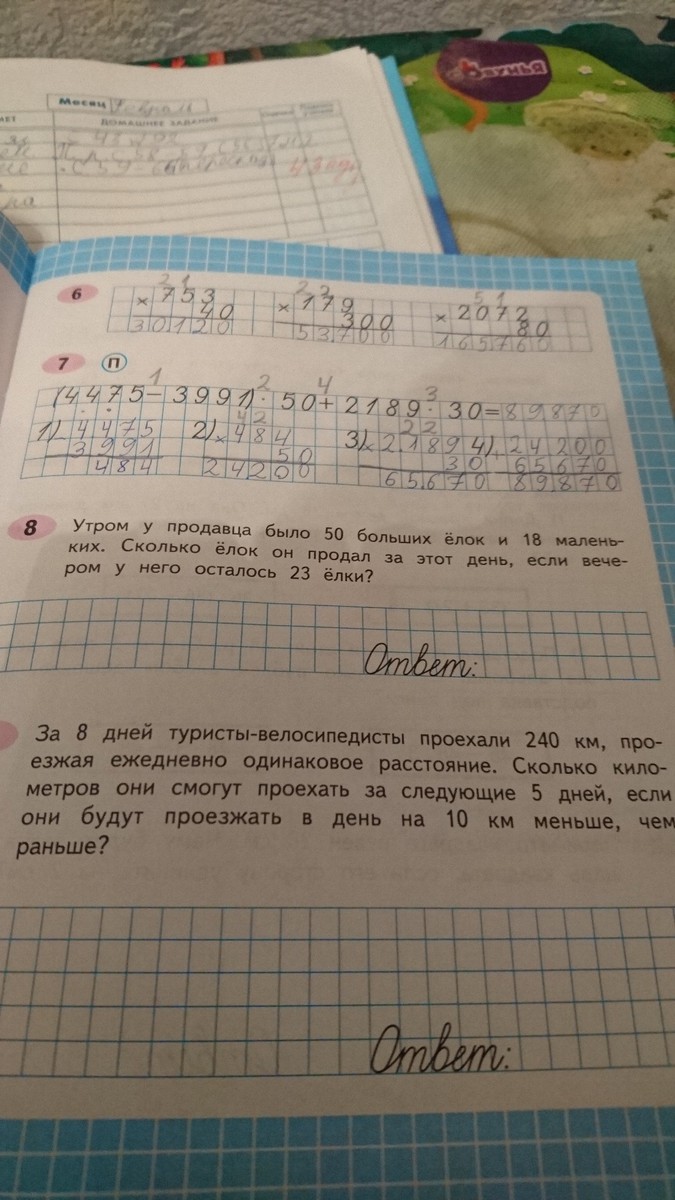 вунья
Месяц Февраль
ДОМАШНЕЕ ЗАДАНИЕ
6
2 1
× 753
40
30120
2 2
× 179
300
53700
5 1
× 2072
80
165760
7 П
1 2 4 3
(4475-3991)·50+2189·30=89870
1) 4475
3991
484
4 2
2) × 484
50
24200
2 2
3) × 2189
30
65670
4) 24200
65670
89870
8 Утром у продавца было 50 больших ёлок и 18 малень-
ких. Сколько ёлок он продал за этот день, если вече-
ром у него осталось 23 ёлки?
Ответ:
За 8 дней туристы-велосипедисты проехали 240 км, про-
езжая ежедневно одинаковое расстояние. Сколько кило-
метров они смогут проехать за следующие 5 дней, если
они будут проезжать в день на 10 км меньше, чем
раньше?
Ответ: